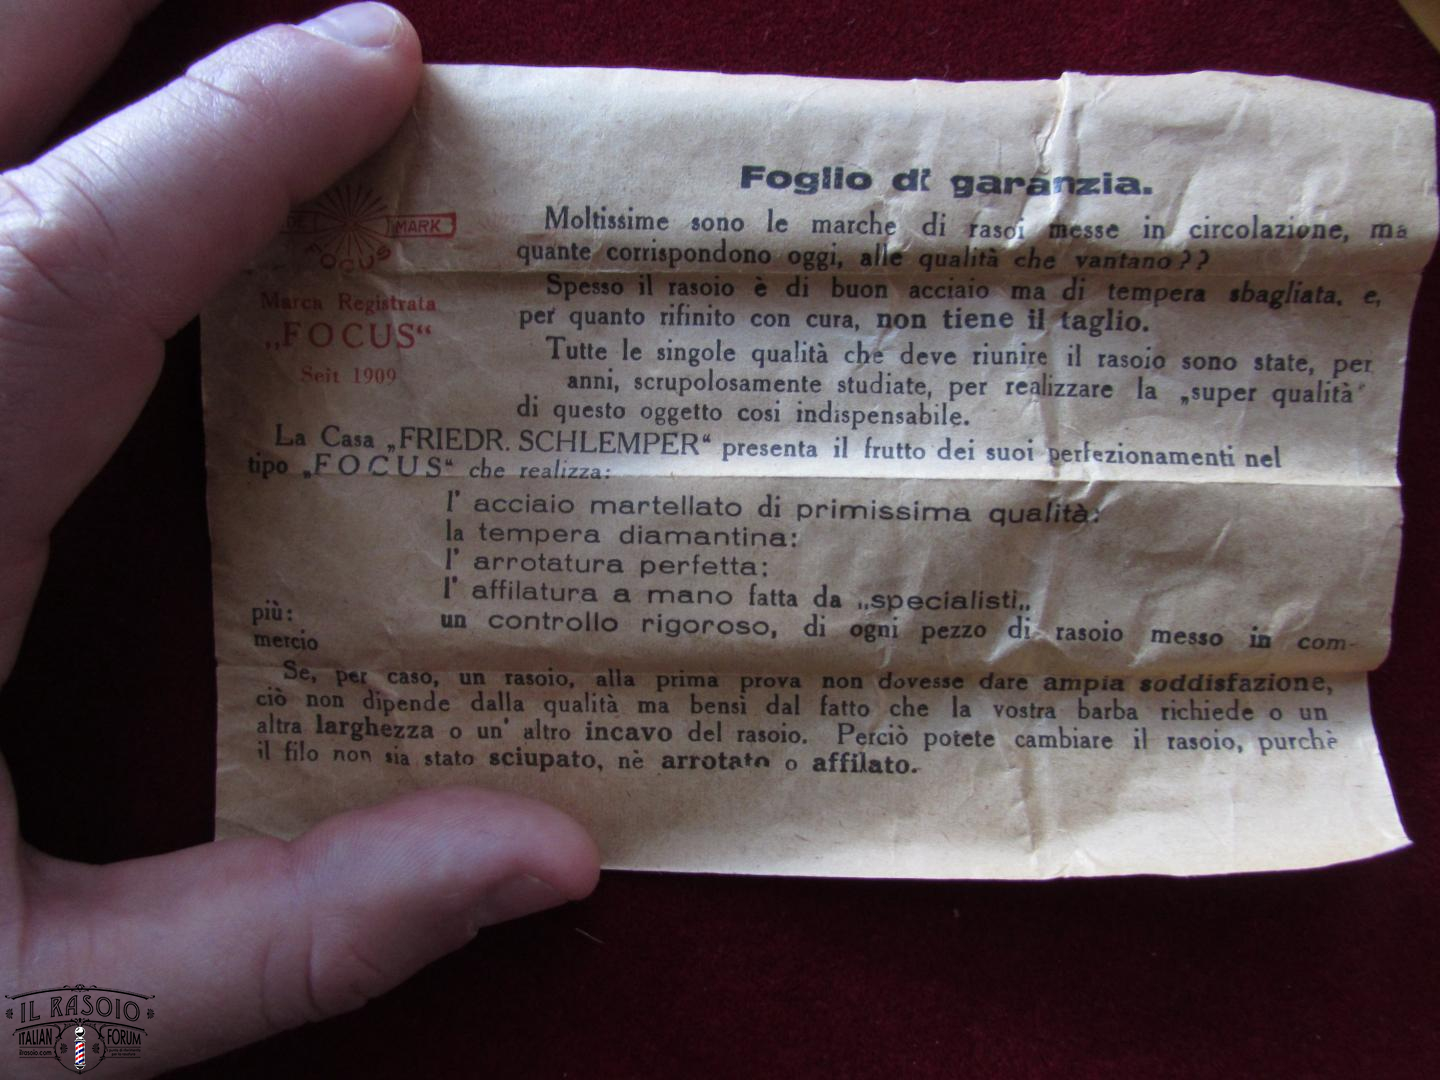 Foglio di garanzia.
MARK
FOCUS
Marca Registrata
„FOCUS“
Seit 1909
Moltissime sono le marche di rasoi messe in circolazione, ma
quante corrispondono oggi, alle qualità che vantano??
Spesso il rasoio è di buon acciaio ma di tempera sbagliata. e,
per quanto rifinito con cura, non tiene il taglio.
Tutte le singole qualità che deve riunire il rasoio sono state, per
anni, scrupolosamente studiate, per realizzare la „super qualità“
di questo oggetto cosi indispensabile.
La Casa „FRIEDR. SCHLEMPER“ presenta il frutto dei suoi perfezionamenti nel
tipo „FOCUS“ che realizza:
l' acciaio martellato di primissima qualità:
la tempera diamantina:
l' arrotatura perfetta:
l' affilatura a mano fatta da „specialisti„
più:
un controllo rigoroso, di ogni pezzo di rasoio messo in com-
mercio
Se, per caso, un rasoio, alla prima prova non dovesse dare ampia soddisfazione,
ciò non dipende dalla qualità ma bensì dal fatto che la vostra barba richiede o un
altra larghezza o un' altro incavo del rasoio. Perciò potete cambiare il rasoio, purchè
il filo non sia stato sciupato, nè arrotato o affilato.
IL RASOIO
ITALIAN FORUM
ilrasoio.com